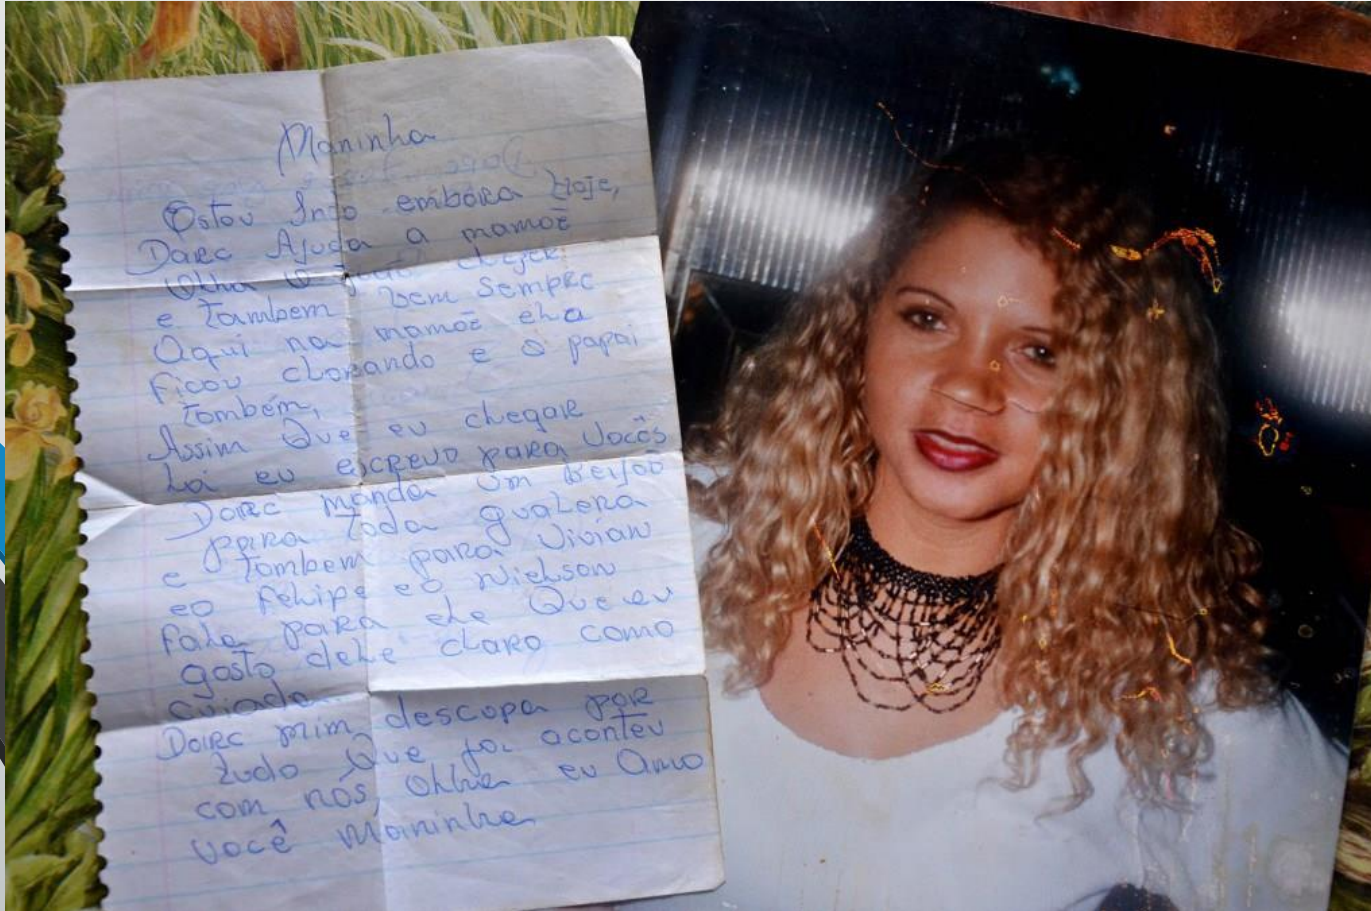 Maninha
Estou Indo embóra Hoje,
Darc Ajuda a mamoẽ
Olha o chejer
e Tambem vem Sempre
Aqui na mamoẽ ela
Ficou chorando e o papai
também,
Assim Que eu chegar
Lá eu escrevo para Vocês
Darc manda um Beijoo
para Toda gualera
e Tambem para Vivian
eo Felipe eo Nielson
Fala para ele Que eu
gosto dele claro como
cuiado
Darc mim descopa por
tudo Que foi aconteu
com nós, Olha eu Amo
você Maninha